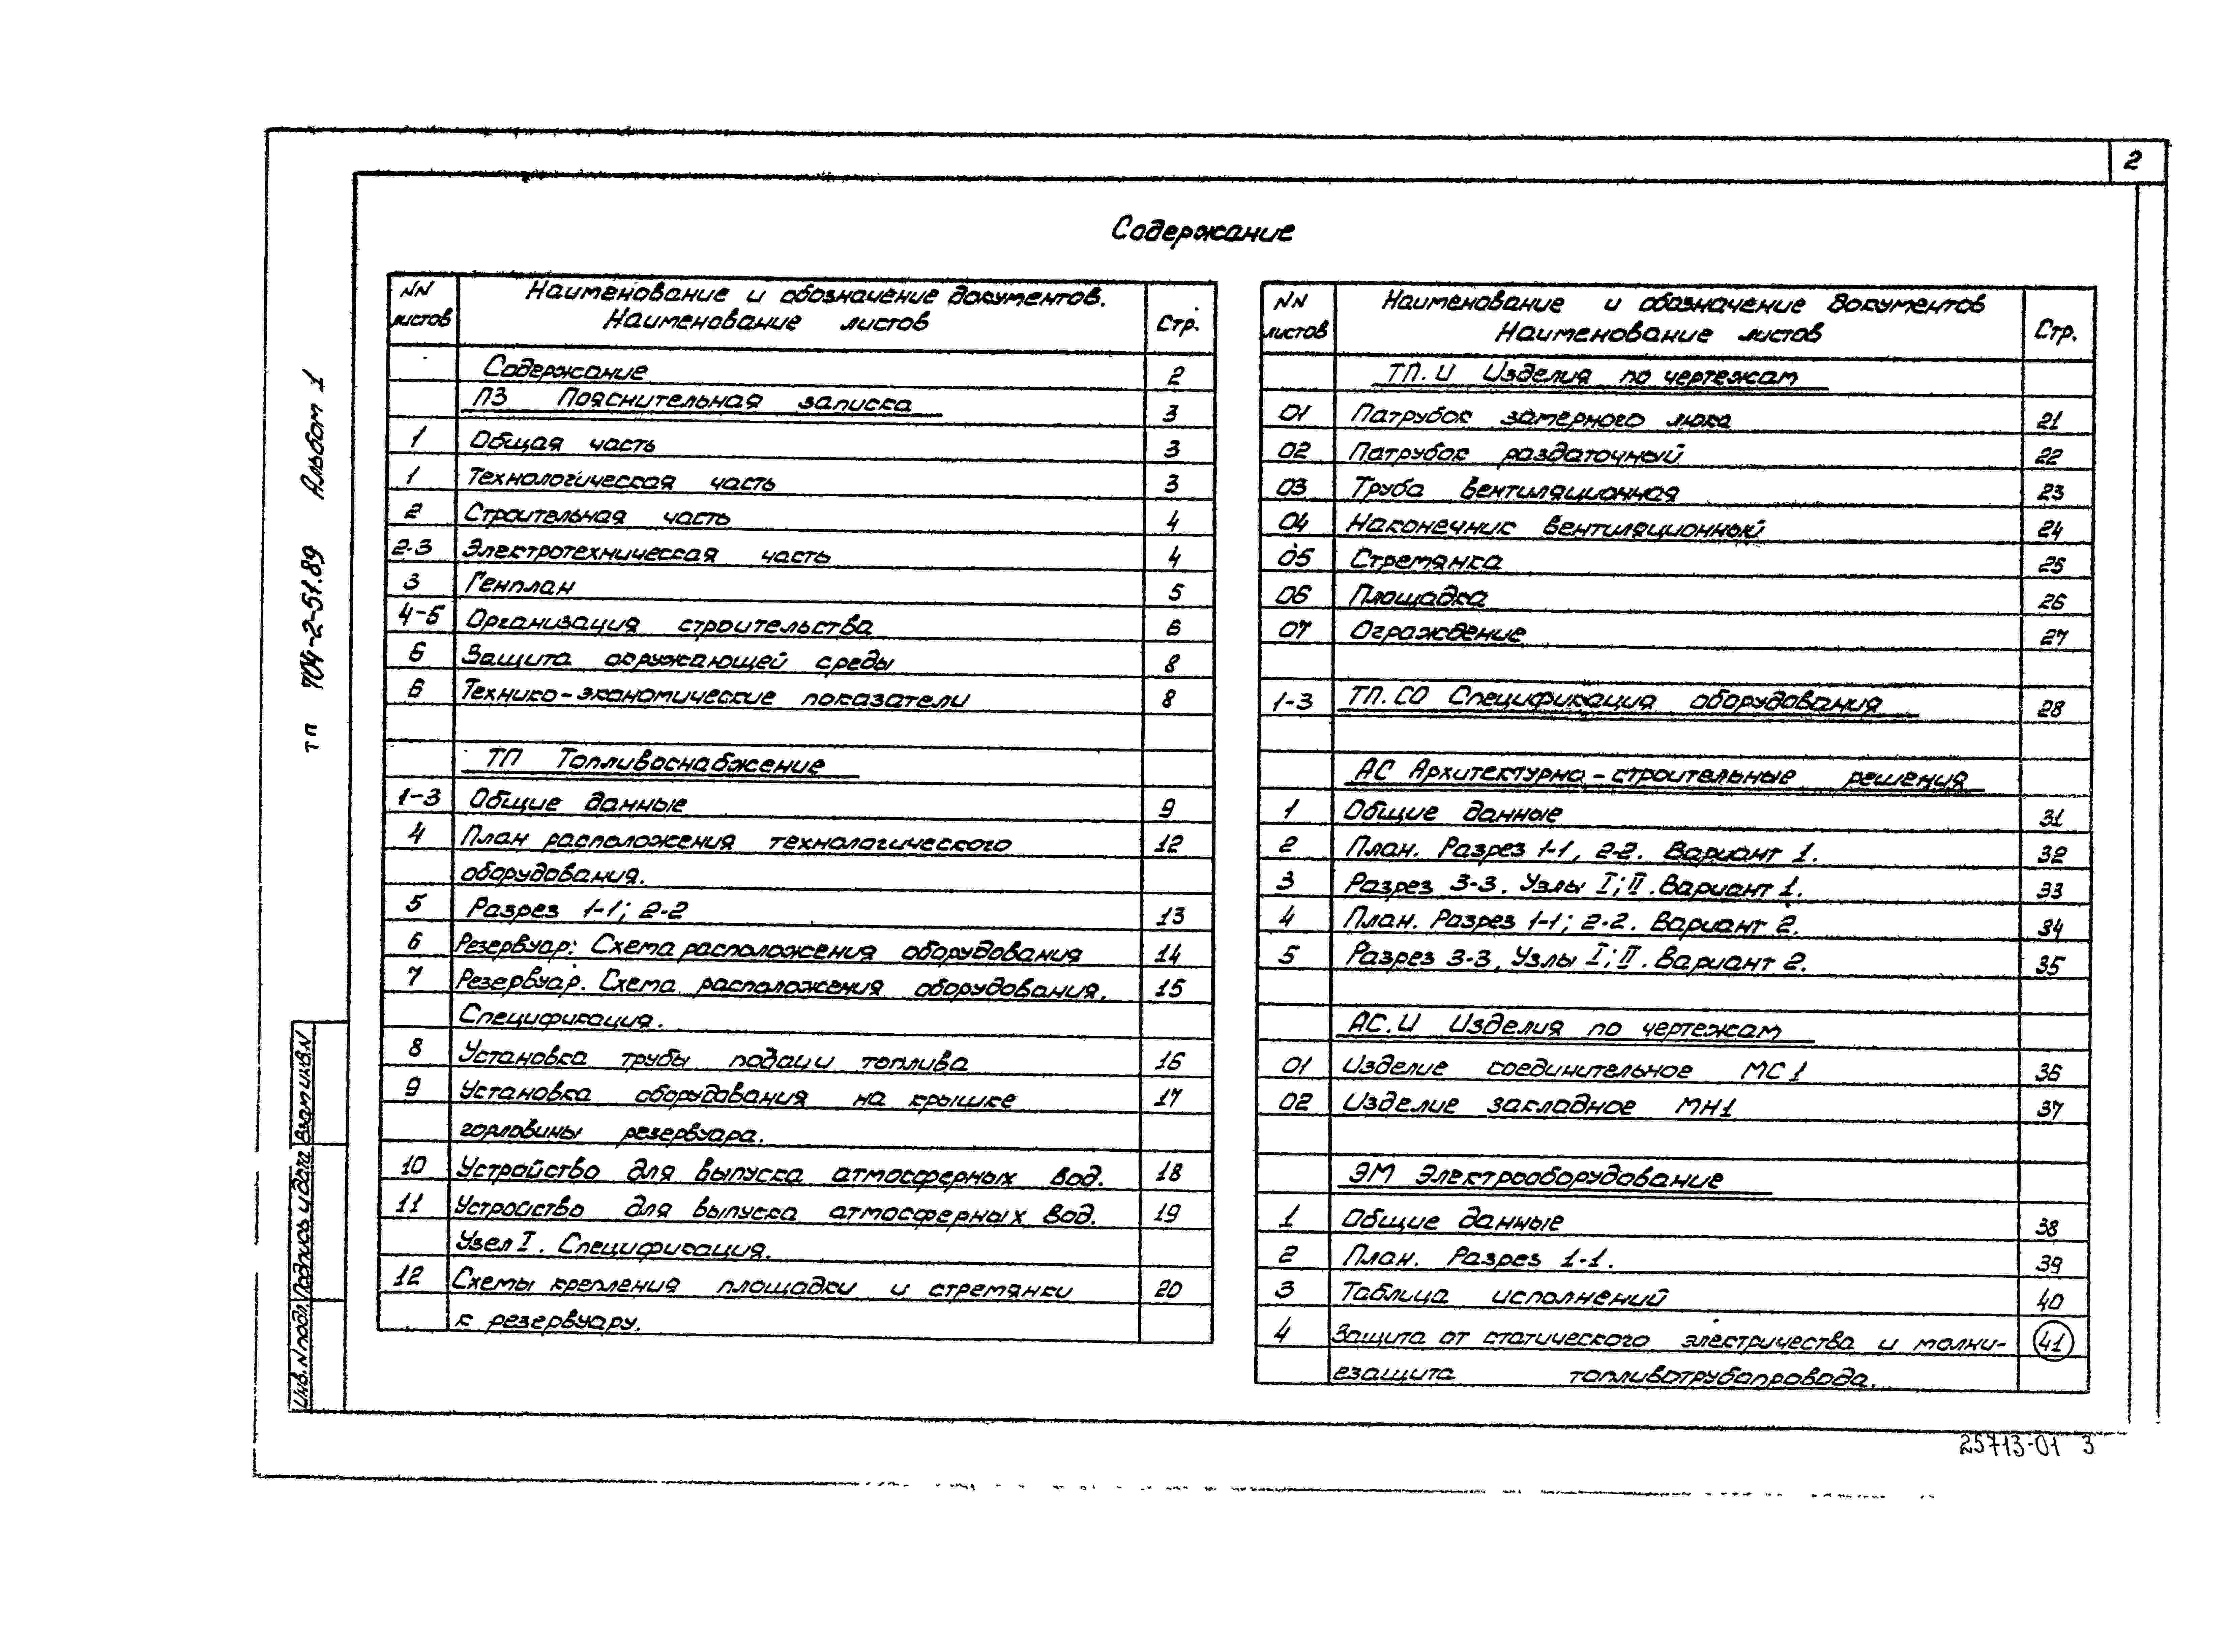 2
Содержание
ТП 704-2-51.89 Альбом 1
NN листов Наименование и обозначение документов. Наименование листов Стр.
Содержание 2
ПЗ Пояснительная записка 3
1 Общая часть 3
1 Технологическая часть 3
2 Строительная часть 4
2-3 Электротехническая часть 4
3 Генплан 5
4-5 Организация строительства 6
6 Защита окружающей среды 8
6 Технико-экономические показатели 8
ТП Топливоснабжение
1-3 Общие данные 9
4 План расположения технологического 12
оборудования.
5 Разрез 1-1; 2-2 13
6 Резервуар. Схема расположения оборудования 14
7 Резервуар. Схема расположения оборудования. 15
Спецификация.
8 Установка трубы подачи топлива 16
9 Установка оборудования на крышке 17
горловины резервуара.
10 Устройство для выпуска атмосферных вод. 18
11 Устройство для выпуска атмосферных вод. 19
Узел I. Спецификация.
12 Схемы крепления площадки и стремянки 20
к резервуару.
NN листов Наименование и обозначение документов Наименование листов Стр.
ТП.И Изделия по чертежам
01 Патрубок замерного люка 21
02 Патрубок раздаточный 22
03 Труба вентиляционная 23
04 Наконечник вентиляционный 24
05 Стремянка 25
06 Площадка 26
07 Ограждение 27
1-3 ТП.СО Спецификация оборудования 28
АС Архитектурно-строительные решения
1 Общие данные 31
2 План. Разрез 1-1, 2-2. Вариант 1. 32
3 Разрез 3-3. Узлы I; II. Вариант 1. 33
4 План. Разрез 1-1; 2-2. Вариант 2. 34
5 Разрез 3-3, Узлы I; II. Вариант 2. 35
АС.И Изделия по чертежам
01 Изделие соединительное МС1 36
02 Изделие закладное МН1 37
ЭМ Электрооборудование
1 Общие данные 38
2 План. Разрез 1-1. 39
3 Таблица исполнений 40
4 Защита от статического электричества и молни- 41
езащита топливотрубопровода.
Инв. N подл. Подпись и дата Взам инв. N
25713-01 3